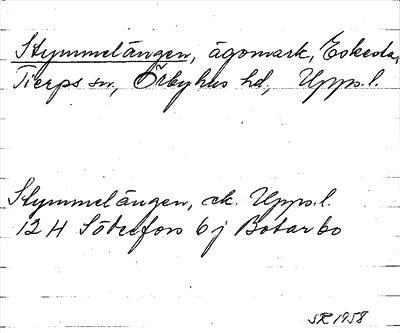 Stymmelängen, ägomark, Eskeda,
Tierps sn, Örbyhus hd, Upps.l.
Stymmelängen, ek. Upps.l.
12 H Söderfors 6 j Botarbo
SR 1958